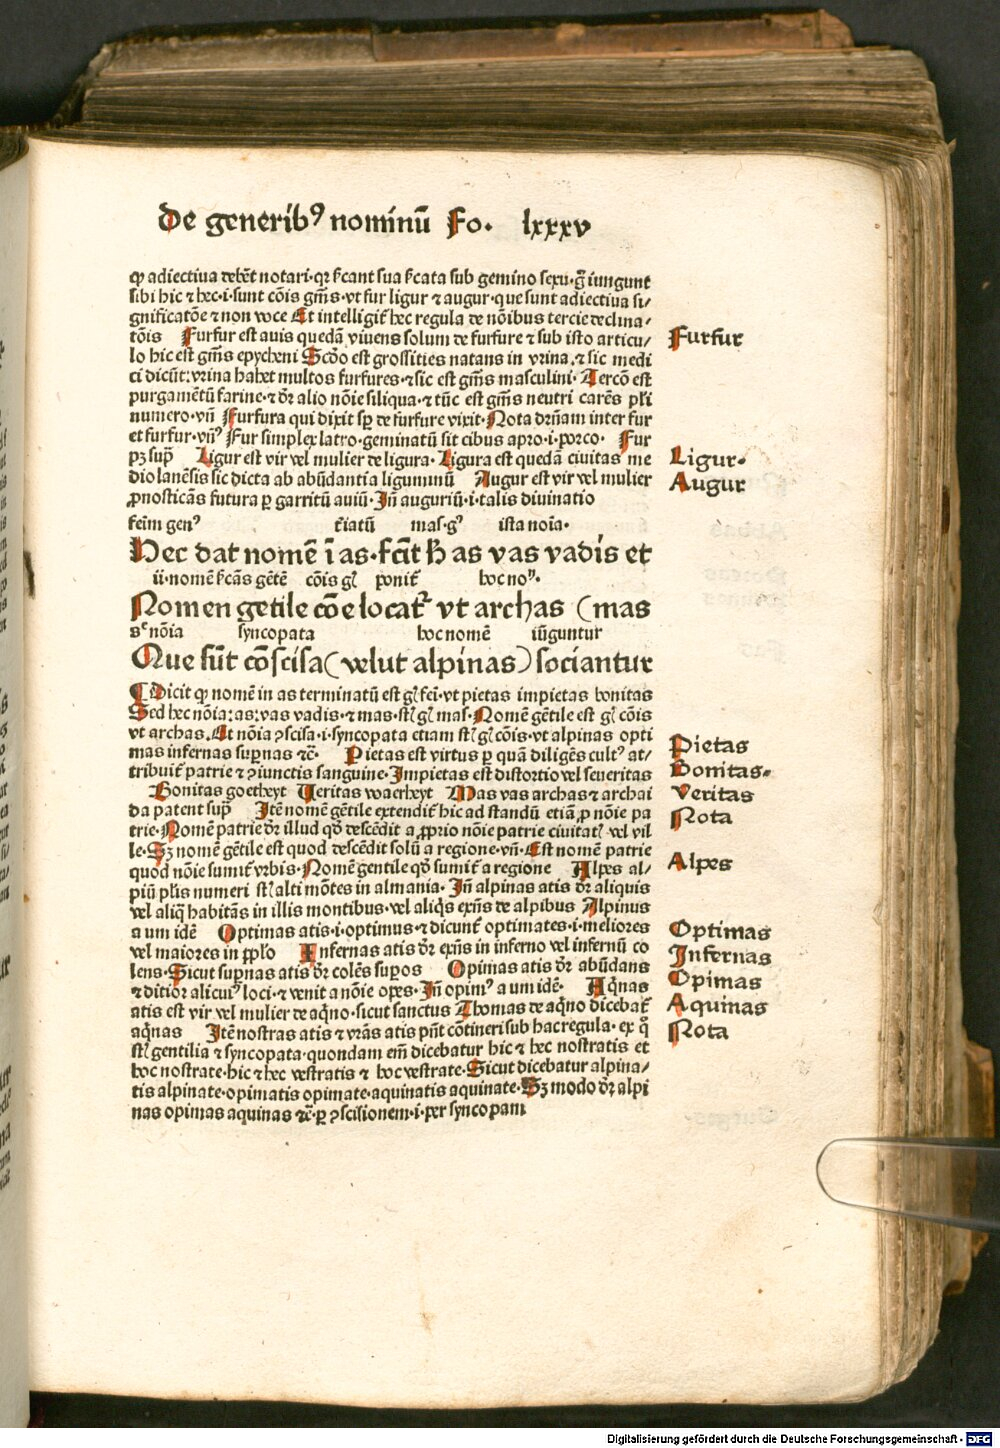 De generibꝰ nominū Fo. lxxxv
ꝙ adiectiua debēt notari·qꝛ ſc̄ant sua ſc̄ata sub gemino sexu·g̃ iungunt
sibi hic ⁊ hec·i·sunt cōis gn̄is·vt fur ligur ⁊ augur·que sunt adiectiua si/
gnificatōe ⁊ non voce Et intelligit̄ hec regula de nōibus tercie declina/
tōis Furfur est auis quedā viuens solum de furfure ⁊ sub isto articu/
lo hic est gn̄is epycheni Scd̄o est grossities natans in vrina.⁊ sic medi
ci dicūt: vrina habet multos furfures·⁊ sic est gn̄is masculini· Tercō est
purgamētū farine·⁊ dr̄ alio nōie siliqua·⁊ tūc est gn̄is neutri carēs pl̄i
numero·vn̄ Furfura qui dixit sꝑ de furfure vixit·Nota dr̄nam inter fur
et furfur·vn̄ꝰ Fur simplex latro·geminatū sit cibus apro·i·porco· Fur
pꝫ sup̄ Ligur est vir vel mulier de ligura· Ligura est quedā ciuitas me
diolanēsis sic dicta ab abūdantia liguminū Augur est vir vel mulier
ꝓnosticās futura ꝑ garritū auiū·In̄ auguriū·i·talis diuinatio
feīm genꝰ f̄iatū mas·gꝰ ista noīa·
Hec dat nomē ī as·fc̄it h̄ as vas vadis et
ū·nomē ſc̄as gētē cōis gꝭ ponit̄ hoc noᷠ·
Nomen gētile cōe locat̄ vt archas (mas
sᶜ nōia syncopata hoc nomē iūguntur
Que sūt cōscisa (velut alpinas) sociantur
¶ Dicit ꝙ nomē in as terminatū est gꝭ fēi·vt pietas impietas bonitas
Sed hec nōia: as: vas vadis·⁊ mas·stꝭ gꝭ mas·Nomē gētile est gꝭ cōis
vt archas.Et nōia ꝯscisa·i·syncopata etiam stꝭ gꝭ cōis·vt alpinas opti
mas infernas supnas ⁊c̄· Pietas est virtus ꝑ quā diligēs cultꝰ at/
tribuit̄ patrie ⁊ ꝯiunctis sanguine·Impietas est distortio vel seueritas
Bonitas goetheyt Veritas waerheyt Mas vas archas ⁊ archai
da patent sup̄ Itē nomē gētile extendit̄ hic ad standū etiā ꝓ nōie pa
trie·Nomē patrie dr̄ illud qd̄ descēdit a ꝓprio nōie patrie ciuitatꝭ vel vil
le·Sꝫ nomē gētile est quod descēdit solū a regione·vn̄·Est nomē patrie
quod nōie sumit̄ vrbis·Nomē gentile qd̄ sumit̄ a regione Alpes al/
piū plis numeri stꝭ alti mōtes in almania· In̄ alpinas atis dr̄ aliquis
vel aliq̄ habitās in illis montibus·vel aliq̇s exn̄s de alpibus Alpinus
a um idē Optimas atis·i·optimus·⁊ dicunt̄ optimates·i·meliores
vel maiores in pp̄lo Infernas atis dr̄ exn̄s in inferno vel infernū co
lens·Sicut supnas atis dr̄ colēs supos Opimas atis dr̄ abūdans
⁊ ditior alicuiꝰ loci·⁊ venit a nōie opes·In̄ opimꝰ a um idē· Aqnas
atis est vir vel mulier de aqno·sicut sanctus Thomas de aqno dicebat̄
aqnas Itē nostras atis ⁊ vrās atis pn̄t cōtineri sub hac regula· ex q̄
stꝭ gentilia ⁊ syncopata·quondam em̄ dicebatur hic ⁊ hec nostratis et
hoc nostrate·hic ⁊ hec vestratis ⁊ hoc vestrate·Sicut dicebatur alpina/
tis alpinate·opimatis opimate·aquinatis aquinate·Sꝫ modo dr̄ alpi
nas opimas aquinas ⁊c̄·ꝑ ꝯscisionem·i·per syncopam
Furfur
Ligur·
Augur
Pietas
Bonitas·
Veritas
Nota
Alpes
Optimas
Infernas
Opimas
Aquinas
Nota
Digitalisierung gefördert durch die Deutsche Forschungsgemeinschaft - DFG